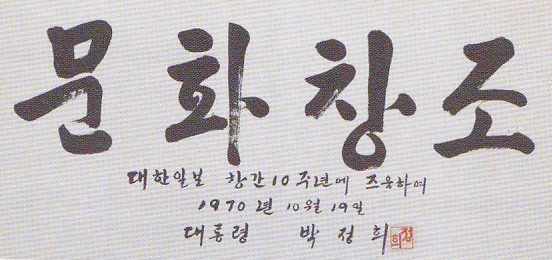 문화창조
대한일보 창간 10주년에 즈음하여
1970년 10월 19일
대통령 박정희